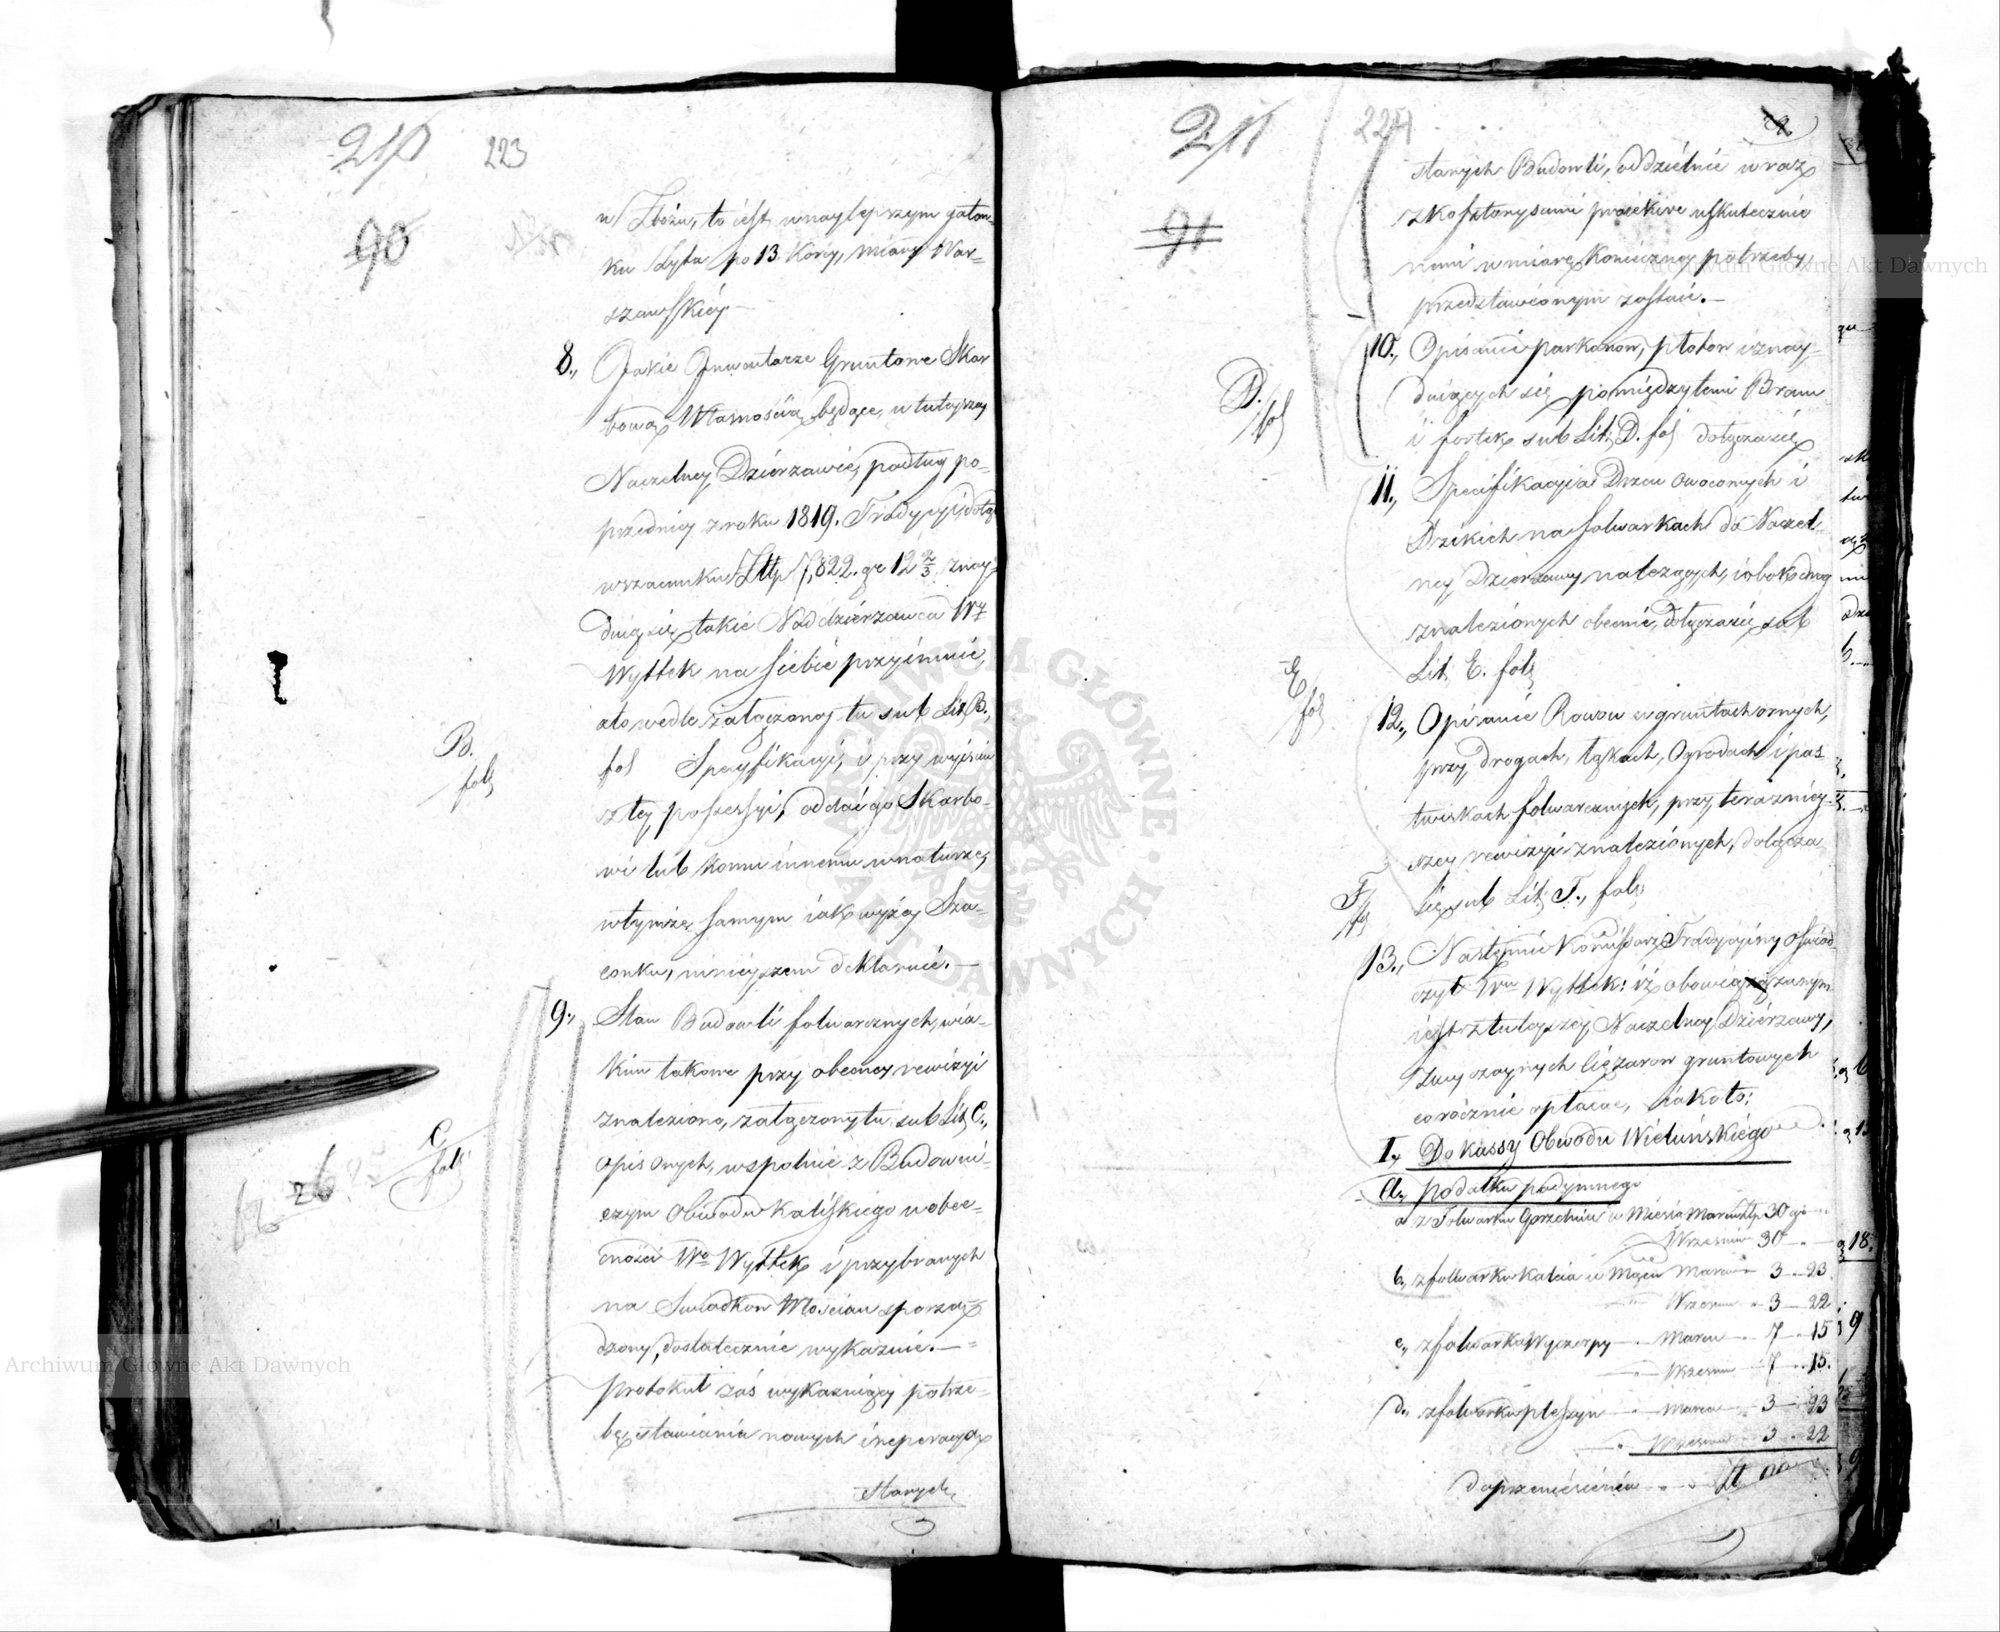 210 223
90
w Zbożu, to iest w naylepszym gatun-
ku Żyta po 13 Korcy, miary War-
szawskiéy.—
8., Jakie Inwentarze Gruntowe Skar
bową Własnością będące, w tuteyszey
Naczelney Dzierzawie, podług po-
przedniey z roku 1819. Tradycyi, dotąd
w szacunku Złłp 7,822. gr 12 2/3 znay-
duią się, takie Naddzierzawca Wy
Wyttek na siebie przyimuie,
a to wedle załączoney tu sub Lit B.,
B.
fol
fol Specyfikacyi, i przy wyiściu
z tey possessyi, oddać go Skarbo-
wi lub komu innemu w naturze,
w tymże samym iak wyżey Sza-
conku, ninieyszem deklaruie.—
9., Stan Budowli folwarcznych, w ia-
kim takowe przy obecney rewizyi
znaleziono, załączony tu sub Lit C.,
C
fol
opis onych, wspolnie z Budowni-
czym Obwodu Kaliskiego w obec-
ności Wo Wyttek i przybranych
na Swiadkow Włościan sporzą-
dzony, dostatecznie wykazuie.—
Protokuł zaś wykazuiący potrze-
bę stawiania nowych i reperacyą
Starych
211 224
91
starych Budowli, oddzielnie wraz
z kosztorysami prziekwe uskutecznio
nemi w miarę konieczney potrzeby,
przedstawionym zostaie.—
10., Opisanie parkanow, płotow i znay-
duiących się pomiędzy temi Bram
D.
fol
i fortek sub Lit D. fol dołącza się
11., Specifikacyia Drzew owocowych i
Dzikich na folwarkach do Naczel-
ney Dzierzawy należących, i obok drog
znalezionych obecnie, dołącza się sub
Lit E. fol
E
fol
12., Opisanie Rowow w gruntach ornych,
przy drogach, łąkach, Ogrodach i pas
twiskach folwarcznych, przy terazniey-
szey rewizyi znalezionych, dołącza
się sub Lit F., fol:
F
fol
13., Następnie Kommissarz Tradycyiny oświad
czył Wu Wyttek: iż obowiązanym
iest z tuteyszey Naczelney Dzierzawy,
zwyczaynych ciężarow gruntowych
corocznie opłacać, iako to:
I., Do Kassy Obwodu Wieluńskiego
A., Podatku podymnego
a z Folwarku Gorzelnia w Miesią Marcu złp 30 gr —
Wrzesniu 30 — —
b, z folwarku Kalcia w Miącu Marcu 3 — 23
Wrzesniu 3 — 22
c., z folwarku Wyczerpy — Marcu — 7 — 15
— Wrzesniu — 7 — 15.
d., z folwarku pleszyn — Marcu — 3 — 23
— Wrzesniu 3 — 22
do przeniesienia